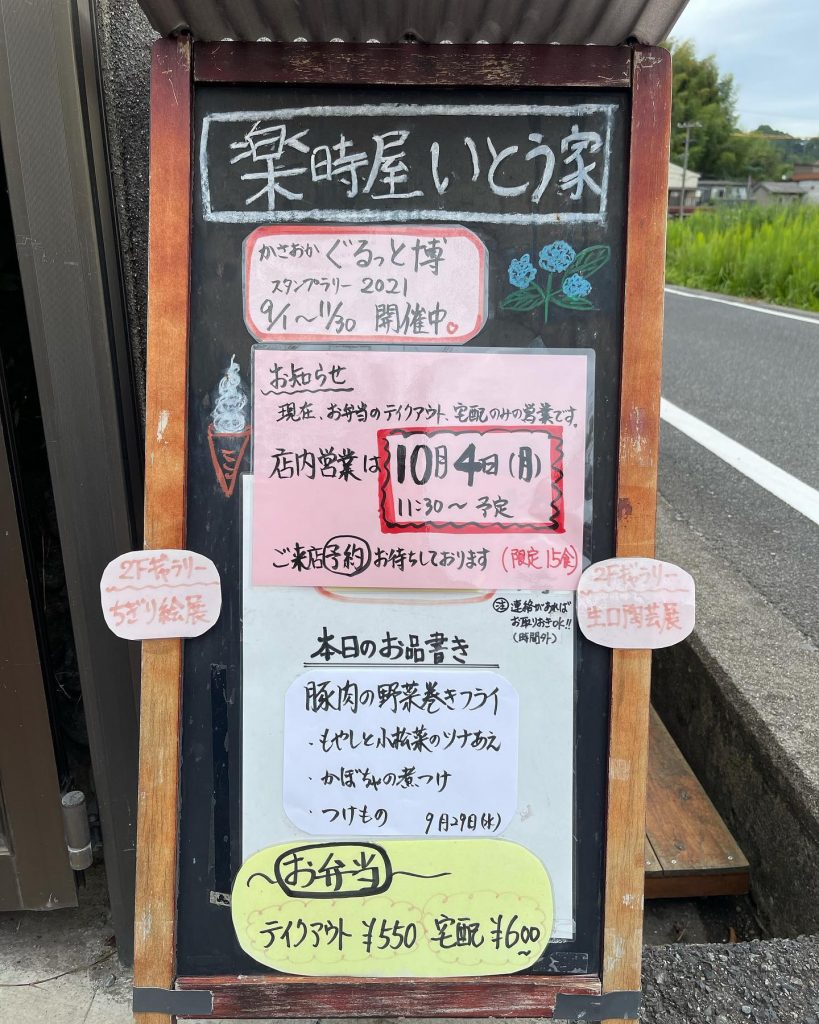 楽時屋 いとう家
かさおか ぐるっと博
スタンプラリー 2021
9/1〜11/30 開催中。
お知らせ
現在、お弁当のテイクアウト、宅配のみの営業です。
店内営業は 10月4日(月)
11:30〜 予定
ご来店予約お待ちしております (限定15食)
2Fギャラリー
ちぎり絵展
2Fギャラリー
生口陶芸展
注 連絡があれば
お取りおきOK!!
(時間外)
本日のお品書き
豚肉の野菜巻きフライ
・もやしと小松菜のツナあえ
・かぼちゃの煮つけ
・つけもの 9月29日(水)
〜お弁当〜
テイクアウト ¥550 宅配 ¥600〜